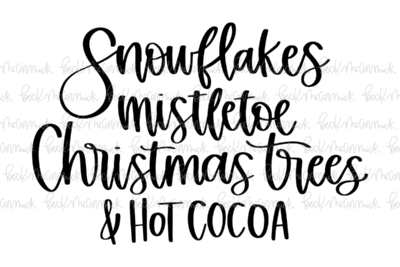 Snowflakes
mistletoe
Christmas trees
& HOT COCOA